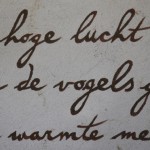 hoge lucht
de vogels
warmte me